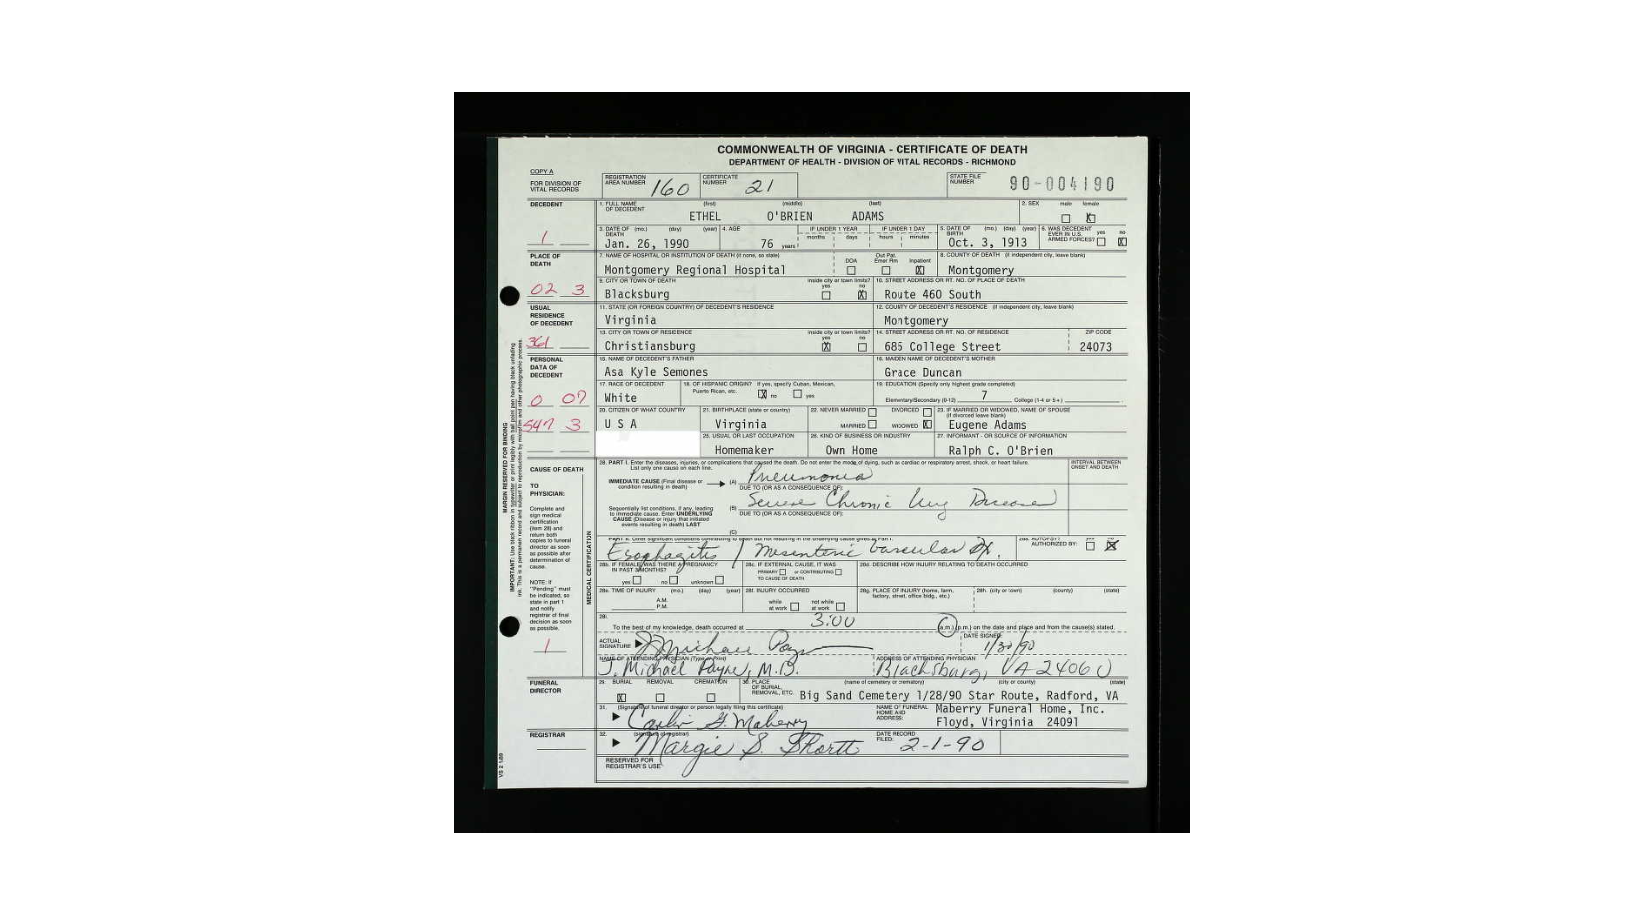 COMMONWEALTH OF VIRGINIA - CERTIFICATE OF DEATH
DEPARTMENT OF HEALTH - DIVISION OF VITAL RECORDS - RICHMOND
COPY A
FOR DIVISION OF VITAL RECORDS
REGISTRATION AREA NUMBER 160 CERTIFICATE NUMBER 21 STATE FILE NUMBER 90-004190
DECEDENT
1. FULL NAME OF DECEDENT (first) (middle) (last) 2. SEX male female
ETHEL O'BRIEN ADAMS X
3. DATE OF DEATH (mo.) (day) (year) 4. AGE IF UNDER 1 YEAR months days IF UNDER 1 DAY hours minutes 5. DATE OF BIRTH (mo.) (day) (year) 6. WAS DECEDENT EVER IN U.S. ARMED FORCES? yes no
1 Jan. 26, 1990 76 years Oct. 3, 1913 X
PLACE OF DEATH
7. NAME OF HOSPITAL OR INSTITUTION OF DEATH (if none, so state) DOA Out Pat. Emer Rm Inpatient 8. COUNTY OF DEATH (if independent city, leave blank)
Montgomery Regional Hospital X Montgomery
9. CITY OR TOWN OF DEATH inside city or town limits? yes no 10. STREET ADDRESS OR RT. NO. OF PLACE OF DEATH
02 3 Blacksburg X Route 460 South
USUAL RESIDENCE OF DECEDENT
11. STATE (OR FOREIGN COUNTRY) OF DECEDENT'S RESIDENCE 12. COUNTY OF DECEDENT'S RESIDENCE (if independent city, leave blank)
Virginia Montgomery
13. CITY OR TOWN OF RESIDENCE inside city or town limits? yes no 14. STREET ADDRESS OR RT. NO. OF RESIDENCE ZIP CODE
361 Christiansburg X 685 College Street 24073
PERSONAL DATA OF DECEDENT
15. NAME OF DECEDENT'S FATHER 16. MAIDEN NAME OF DECEDENT'S MOTHER
Asa Kyle Semones Grace Duncan
17. RACE OF DECEDENT 18. OF HISPANIC ORIGIN? If yes, specify Cuban, Mexican, Puerto Rican, etc. X no yes 19. EDUCATION (Specify only highest grade completed)
0 07 White Elementary/Secondary (0-12) 7 College (1-4 or 5+)
20. CITIZEN OF WHAT COUNTRY 21. BIRTHPLACE (state or country) 22. NEVER MARRIED DIVORCED MARRIED WIDOWED X 23. IF MARRIED OR WIDOWED, NAME OF SPOUSE (if divorced leave blank)
547 3 U S A Virginia Eugene Adams
25. USUAL OR LAST OCCUPATION 26. KIND OF BUSINESS OR INDUSTRY 27. INFORMANT - OR SOURCE OF INFORMATION
Homemaker Own Home Ralph C. O'Brien
CAUSE OF DEATH
28. PART I. Enter the diseases, injuries, or complications that caused the death. Do not enter the mode of dying, such as cardiac or respiratory arrest, shock, or heart failure. List only one cause on each line. INTERVAL BETWEEN ONSET AND DEATH
IMMEDIATE CAUSE (Final disease or condition resulting in death) (A) Pneumonia
DUE TO (OR AS A CONSEQUENCE OF):
Sequentially list conditions, if any, leading to immediate cause. Enter UNDERLYING CAUSE (Disease or injury that initiated events resulting in death) LAST (B) Severe Chronic lung Disease
DUE TO (OR AS A CONSEQUENCE OF):
(C)
Esophagitis / Mesenteric Vascular Dx. AUTHORIZED BY: X
TO PHYSICIAN:
Complete and sign medical certification (item 28) and return both copies to funeral director as soon as possible after determination of cause.
NOTE: If "Pending" must be indicated, so state in part 1 and notify registrar of final decision as soon as possible.
1
MEDICAL CERTIFICATION
28b. IF FEMALE, WAS THERE A PREGNANCY IN PAST 3 MONTHS? yes no unknown 28c. IF EXTERNAL CAUSE, IT WAS PRIMARY or CONTRIBUTING TO CAUSE OF DEATH 28d. DESCRIBE HOW INJURY RELATING TO DEATH OCCURRED
28e. TIME OF INJURY (mo.) (day) (year) A.M. P.M. 28f. INJURY OCCURRED while at work not while at work 28g. PLACE OF INJURY (home, farm, factory, street, office bldg., etc.) 28h. (city or town) (county) (state)
29. To the best of my knowledge, death occurred at 3:00 (a.m.) (p.m.) on the date and place and from the cause(s) stated.
ACTUAL SIGNATURE J Michael Payne DATE SIGNED 1/30/90
NAME OF ATTENDING PHYSICIAN (Type or Print) ADDRESS OF ATTENDING PHYSICIAN
J. Michael Payne, M.D. Blacksburg, VA 24060
FUNERAL DIRECTOR
BURIAL X REMOVAL CREMATION 30. PLACE OF BURIAL, REMOVAL, ETC. (name of cemetery or crematory) (city or county) (state)
Big Sand Cemetery 1/28/90 Star Route, Radford, VA
31. (Signature of funeral director or person legally filing this certificate) NAME OF FUNERAL HOME AND ADDRESS:
Maberry Funeral Home, Inc.
Floyd, Virginia 24091
REGISTRAR
32. (signature of registrar) Margie S. Shortt DATE RECORD FILED: 2-1-90
RESERVED FOR REGISTRAR'S USE
MARGIN RESERVED FOR BINDING
VS 2 1/89